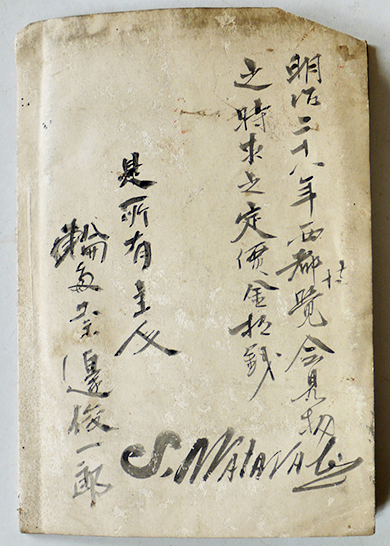 明治二十八年西都博覧会見物
之時求之定價金拾銭
是所有主人
邊俊一郎
S. Watanabe